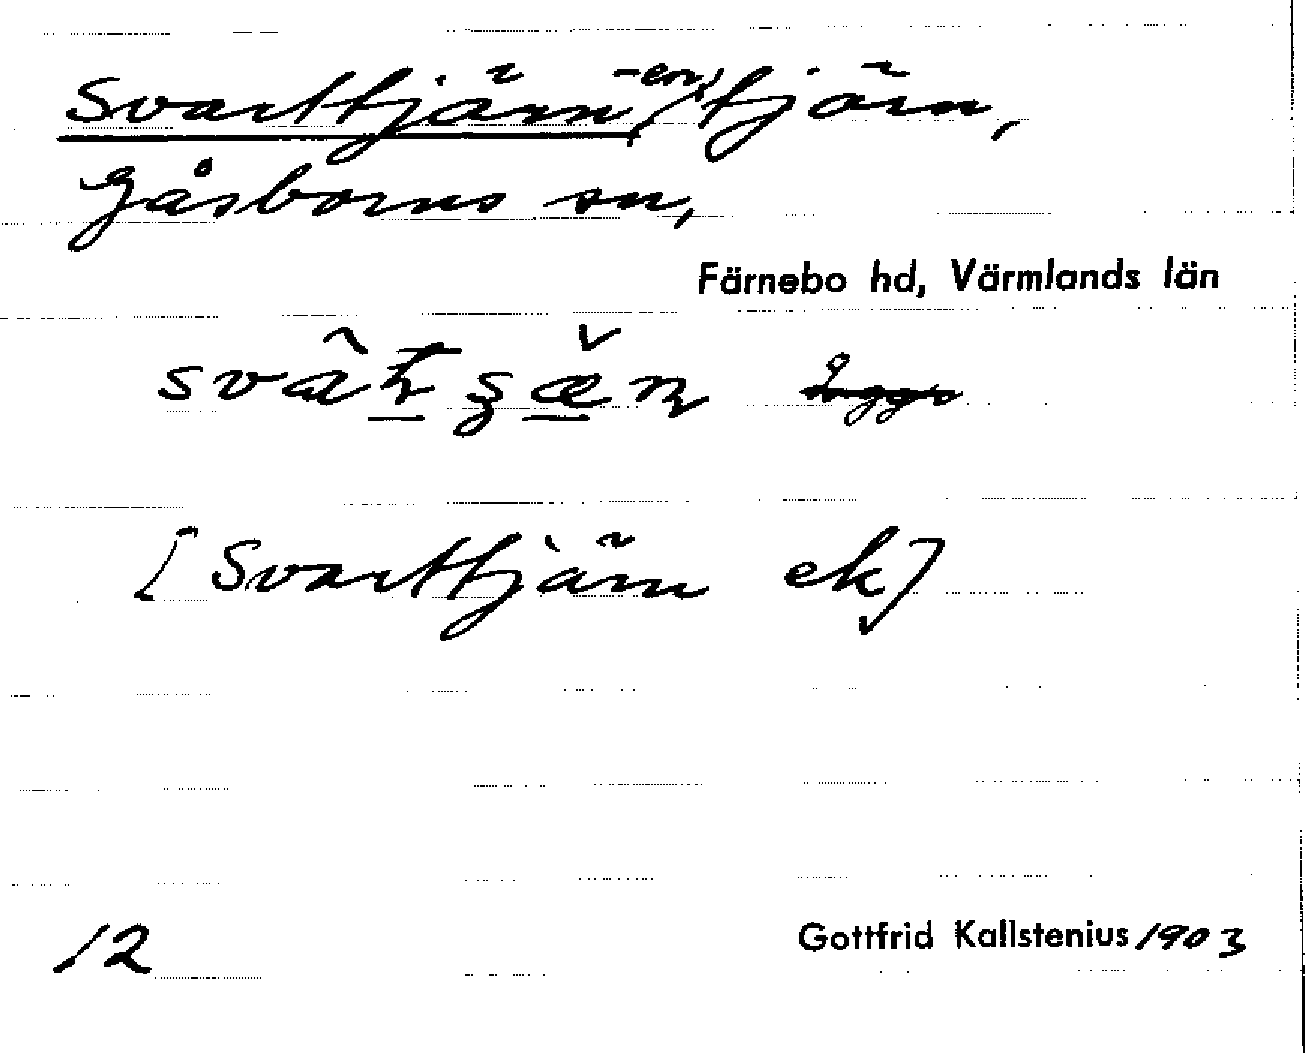 Svarttjärn, -en, tjärn,
Gåsborns sn,
Färnebo hd, Värmlands län
[Svarttjärn ek]
12
Gottfrid Kallstenius 1903